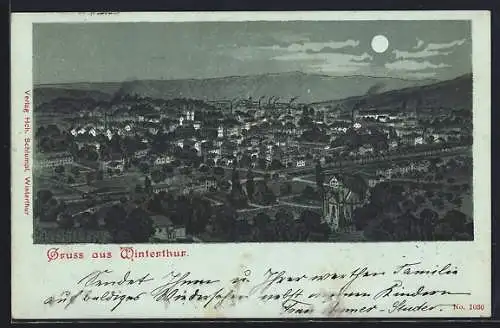 Verlag Hch. Schlumpf, Winterthur
Gruss aus Winterthur.
Sendet Ihnen u. Ihrer werthen Familie
auf baldiges Wiedersehen nebst Kindern
Frau Studer.
No. 1036